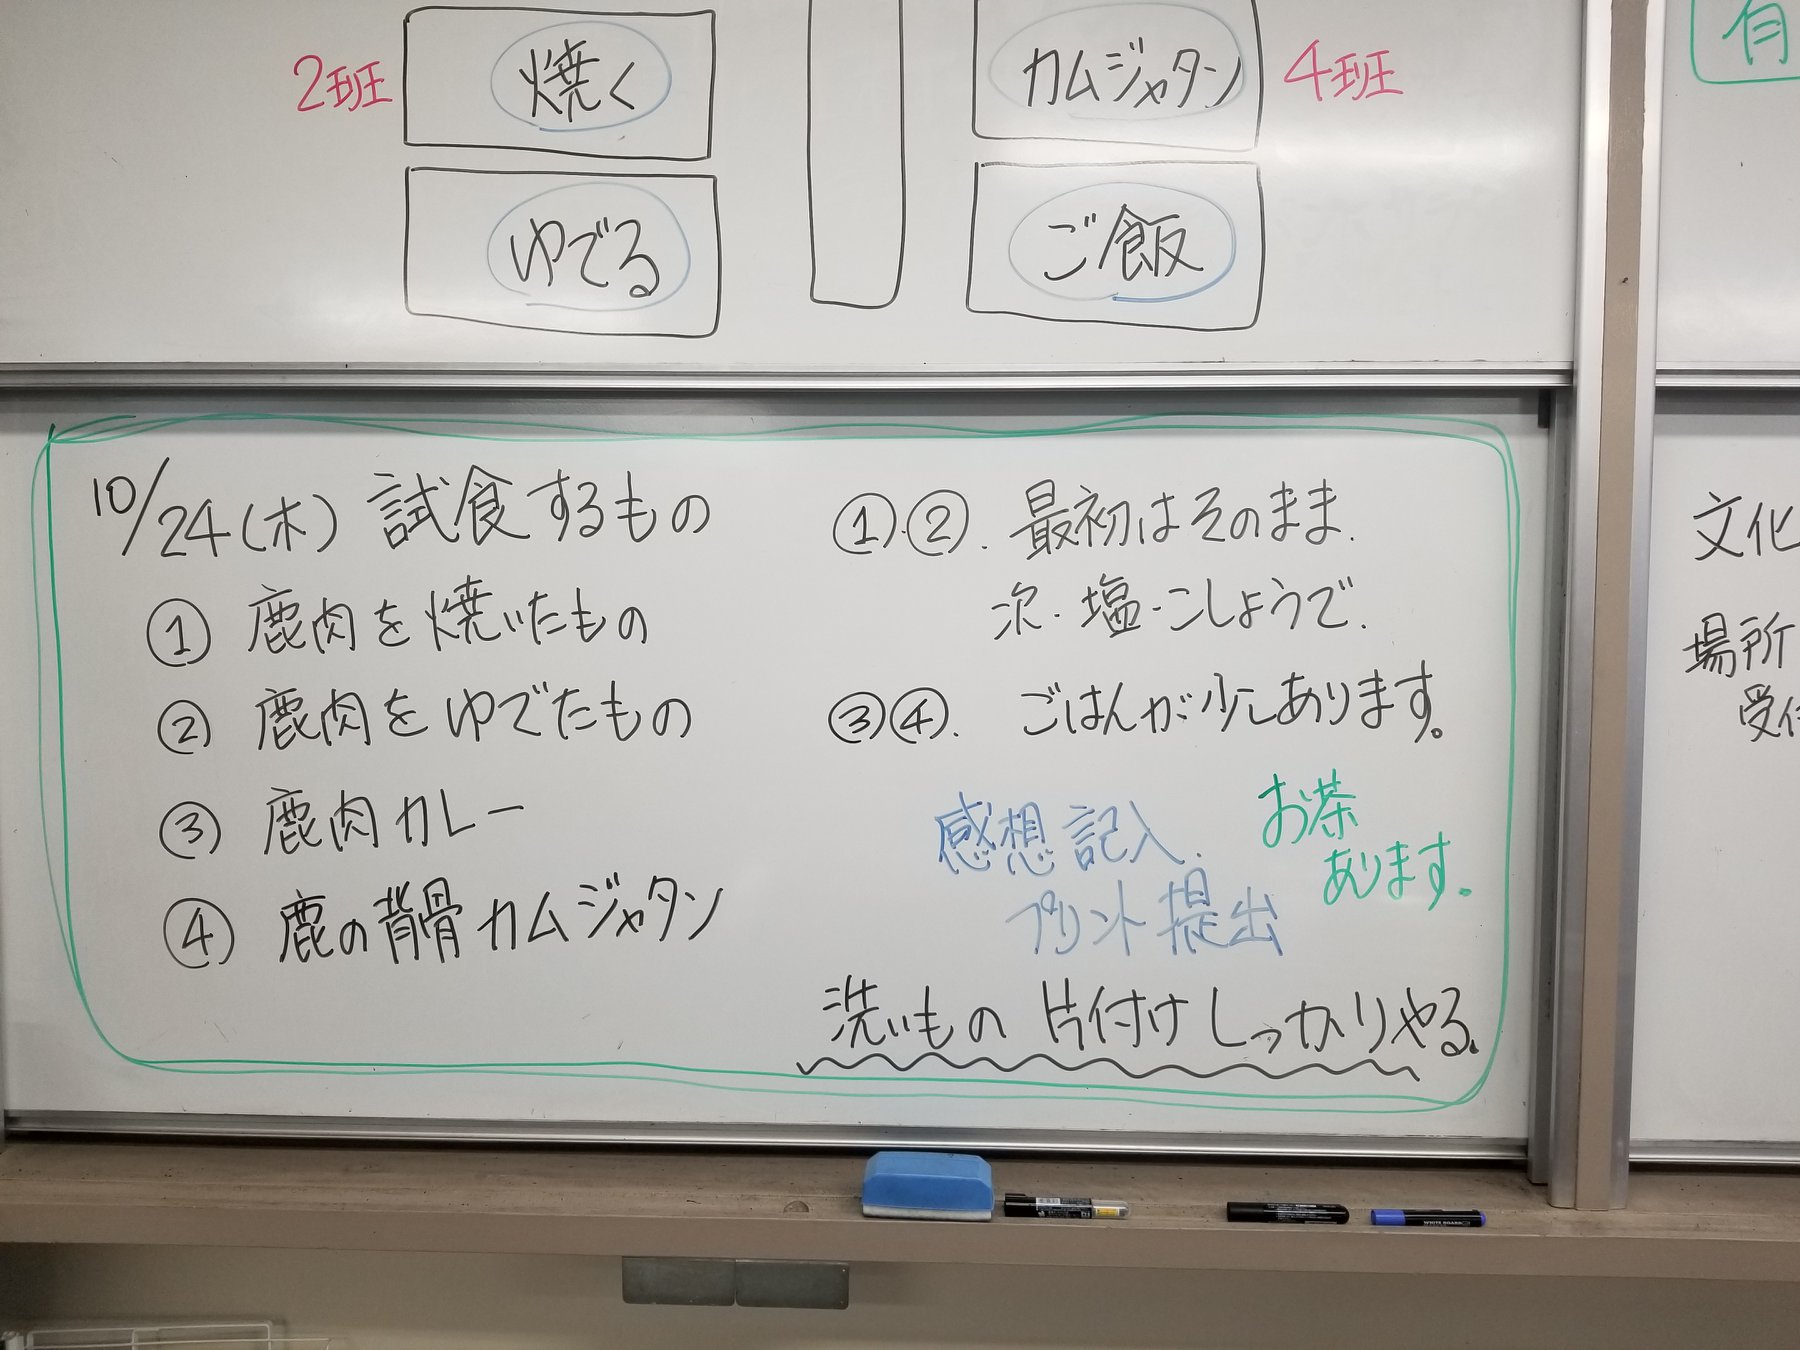 2班
焼く
カムジャタン
4班
有
ゆでる
ご飯
10/24(木) 試食するもの
① 鹿肉を焼いたもの
② 鹿肉をゆでたもの
③ 鹿肉カレー
④ 鹿の背骨カムジャタン
①・②. 最初はそのまま.
次・塩・こしょうで.
③④. ごはんが少しあります。
感想記入.
プリント提出
お茶
あります。
洗いもの 片付けしっかりやる.
文化
場所
受付
WHITE BOARD